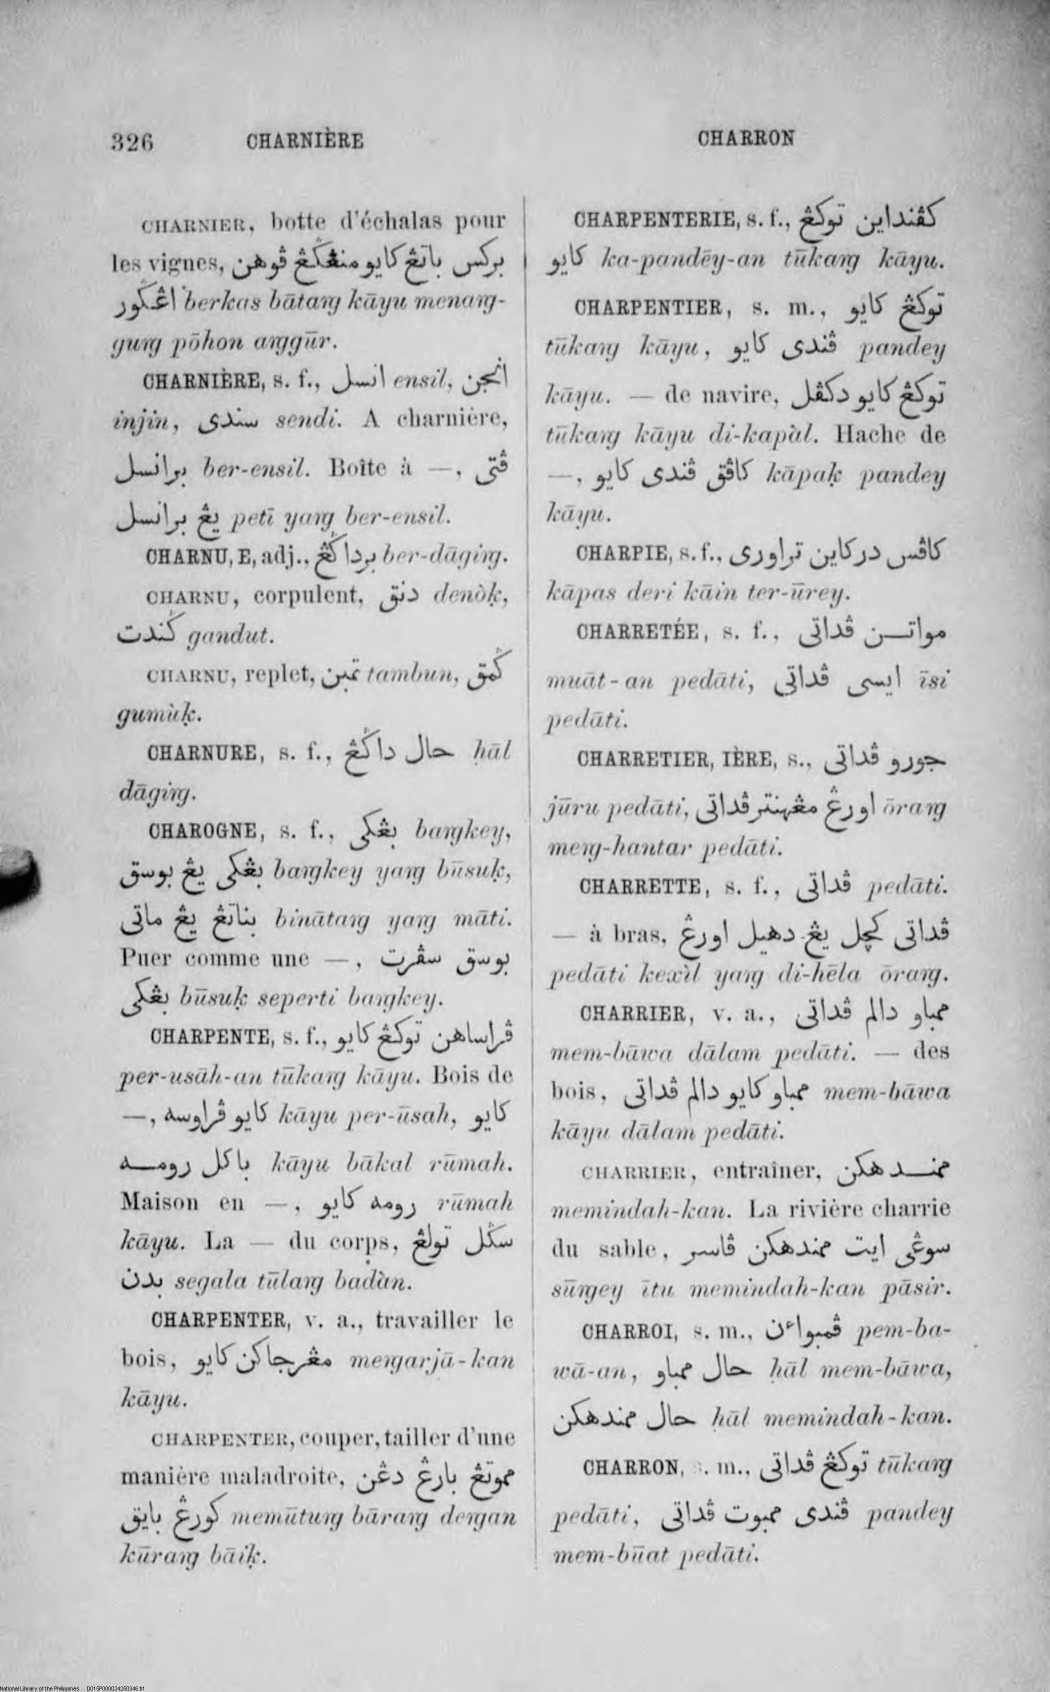 326 CHARNIÈRE
CHARRON
CHARNIER, botte d'échalas pour
les vignes, بركس باتڠ كايو منڠݢڠ ڤوهن
اڠݢور berkas bātaŋ kāyu menaŋ-
guŋ pōhon aŋgūr.
CHARNIÈRE, s. f., انسل ensil, انجن
injin, سندى sendi. A charnière,
برانسل ber-ensil. Boîte à —, ڤتى
يڠ برانسل petī yaŋ ber-ensil.
CHARNU, E, adj., برداݢڠ ber-dāgiŋ.
CHARNU, corpulent, دنق denòḳ,
ݢندت gandut.
CHARNU, replet, تمبن tambun, ݢمق
gumùḳ.
CHARNURE, s. f., حال داݢڠ ḥāl
dāgiŋ.
CHAROGNE, s. f., بڠكى baŋkey,
بڠكى يڠ بوسق baŋkey yaŋ būsuḳ,
بناتڠ يڠ ماتى binātaŋ yaŋ māti.
Puer comme une —, بوسق سڤرت
بڠكى būsuḳ seperti baŋkey.
CHARPENTE, s. f., ڤراساهن توكڠ كايو
per-usāh-an tūkaŋ kāyu. Bois de
—, كايو ڤراوسه kāyu per-ūsah, كايو
باكل رومه kāyu bākal rūmah.
Maison en —, رومه كايو rūmah
kāyu. La — du corps, سݢل تولڠ
بدن segala tūlaŋ badàn.
CHARPENTER, v. a., travailler le
bois, مڠرجاكن كايو meŋarjā-kan
kāyu.
CHARPENTER, couper, tailler d'une
manière maladroite, مموتڠ بارڠ دڠن
كورڠ بايق memūtuŋ bāraŋ deŋan
kūraŋ bāiḳ.
CHARPENTERIE, s. f., كڤنداين توكڠ
كايو ka-pandēy-an tūkaŋ kāyu.
CHARPENTIER, s. m., توكڠ كايو
tūkaŋ kāyu, ڤندى كايو pandey
kāyu. — de navire, توكڠ كايو دكڤل
tūkaŋ kāyu di-kapàl. Hache de
—, كاڤق ڤندى كايو kāpaḳ pandey
kāyu.
CHARPIE, s. f., كاڤس دركاين تراورى
kāpas deri kāin ter-ūrey.
CHARRETÉE, s. f., مواتن ڤداتى
muāt-an pedāti, ايسى ڤداتى īsi
pedāti.
CHARRETIER, IÈRE, s., جورو ڤداتى
jūru pedāti, اورڠ مڠهنتر ڤداتى ōraŋ
meŋ-hantar pedāti.
CHARRETTE, s. f., ڤداتى pedāti.
— à bras, ڤداتى كچل يڠ دهيل اورڠ
pedāti kexìl yaŋ di-hēla ōraŋ.
CHARRIER, v. a., ممباو دالم ڤداتى
mem-bāwa dālam pedāti. — des
bois, ممباو كايو دالم ڤداتى mem-bāwa
kāyu dālam pedāti.
CHARRIER, entraîner, ممندهكن
memindah-kan. La rivière charrie
du sable, سوڠى ايت ممندهكن ڤاسر
sūŋey ītu memindah-kan pāsir.
CHARROI, s. m., ڤمبواءن pem-ba-
wā-an, حال ممباو ḥāl mem-bāwa,
حال ممندهكن ḥāl memindah-kan.
CHARRON, s. m., توكڠ ڤداتى tūkaŋ
pedāti, ڤندى ممبوت ڤداتى pandey
mem-būat pedāti.
National Library of the Philippines